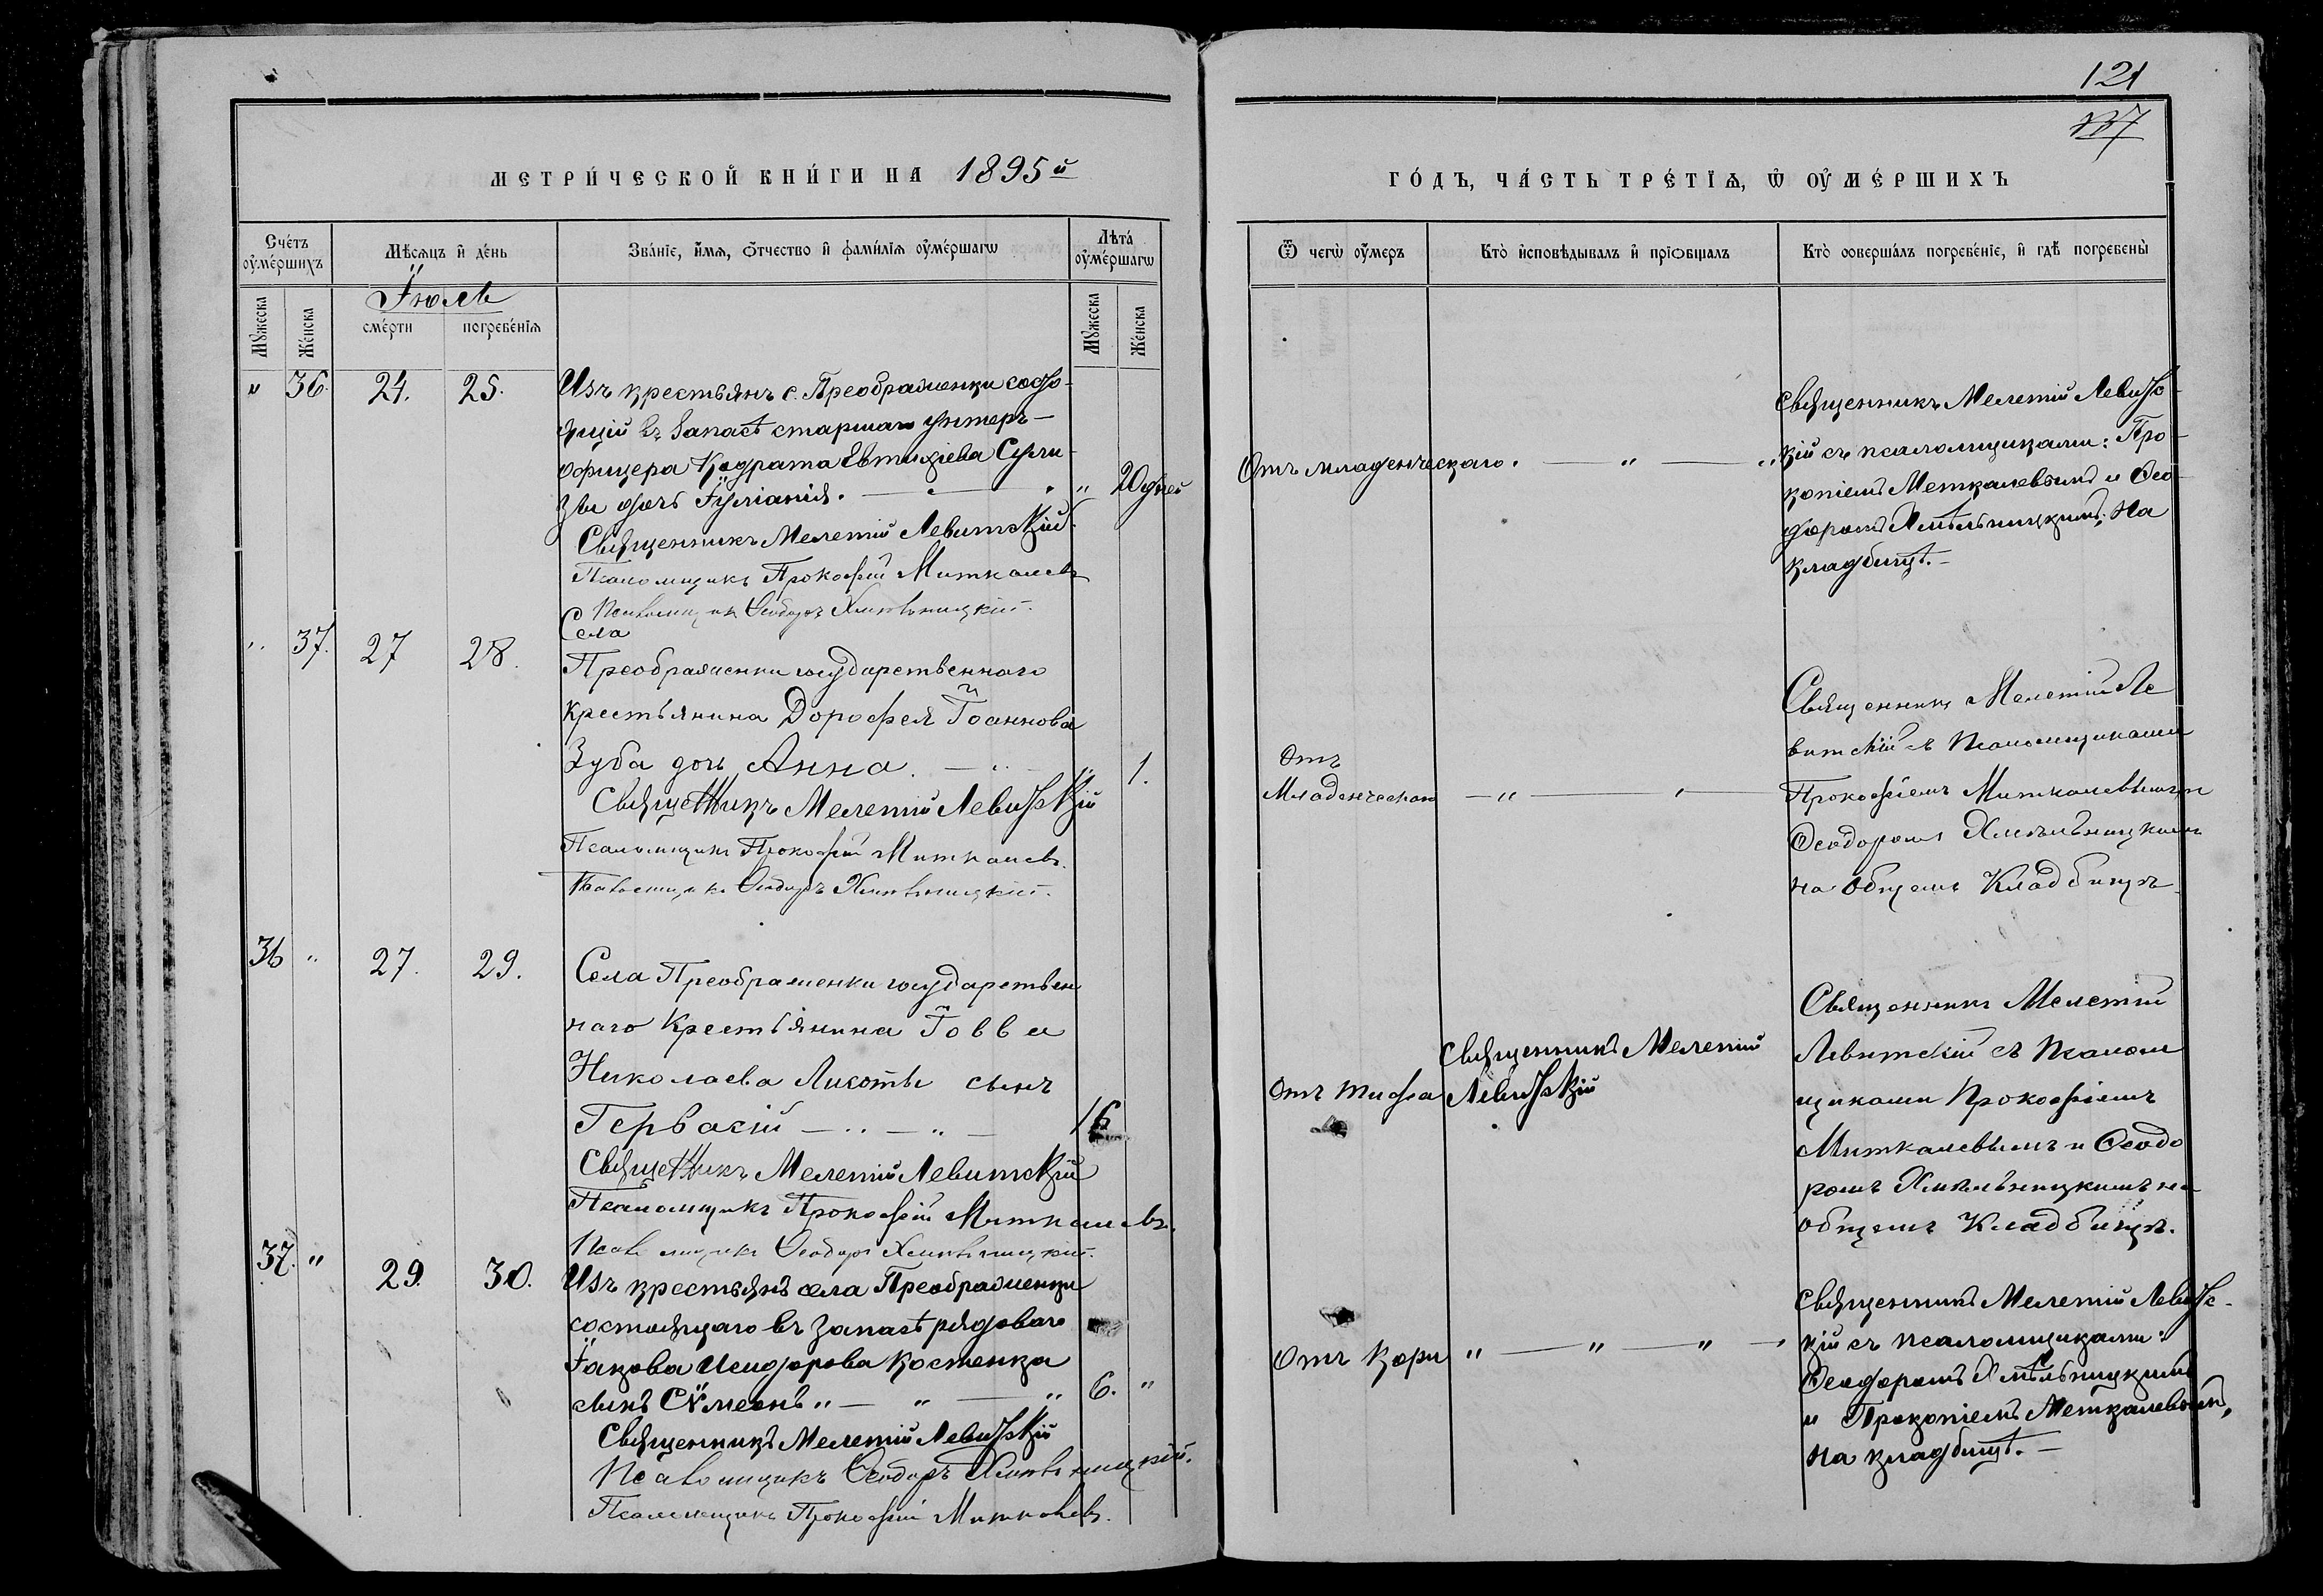 121
137
МЕТРИ́ЧЕСКОЙ КНИ́ГИ НА 1895й
ГО́ДЪ, ЧА́СТЬ ТРЕ́ТІѦ, Ѡ҆ ОУ҆МЕ́РШИХЪ
Сче́тъ оу҆ме́ршихъ
Мѣ́сѧцъ и҆ де́нь
Зва́нїе, и҆́мѧ, ѻ҆́тчество и҆ фами́лїѧ оу҆ме́ршагѡ
Лѣта̀ оу҆ме́ршагѡ
Ѿ чегѡ̀ оу҆́меръ
Кто̀ и҆сповѣ́дывалъ и҆ прїѻбща́лъ
Кто̀ соверша́лъ погребе́нїе, и҆ гдѣ̀ погребены̀
Мꙋ́жеска
Же́нска
Іюль
сме́рти
погребе́нїѧ
Мꙋ́жеска
Же́нска
" 36. 24. 25.
Изъ крестьянъ с. Преображенки состо-
ящій въ запасѣ старшаго унтеръ-
офицера Кодрата Евтихіева
дочь Іуліанія. " 20 дней
Священникъ Мелетій Левитскій
Псаломщикъ Прокофій Миткалевъ
Псаломщикъ Ѳеодоръ Хмѣльницкій.
Отъ младенческаго. " "
Священникъ Мелетій Левитс-
кій съ псаломщиками: Про-
копіемъ Меткалевымъ и Ѳео-
доромъ Хмѣльницкимъ; на
кладбищѣ.-
" 37. 27 28.
Села
Преображенки государственнаго
крестьянина Дорофея Іоаннова
Зуба дочь Анна. " 1.
Священникъ Мелетій Левитскій
Псаломщикъ Прокофій Миткалевъ.
Псаломщикъ Ѳеодоръ Хмѣльницкій.
Отъ
Младенческаго "
Священникъ Мелетій Ле
витскій съ Псаломщиками
Прокофіемъ Миткалевымъ и
Ѳеодоромъ Хмѣльницкимъ
на общемъ Кладбищѣ
36 " 27. 29.
Села Преображенки государствен
наго Крестьянина Іовва
Николаева сынъ
Гервасій 16
Священникъ Мелетій Левитскій
Псаломщикъ Прокофій Миткалевъ.
Псаломщикъ Ѳеодоръ Хмѣльницкій.
Отъ тифа
Священникъ Мелетій
Левитскій
Священникъ Мелетій
Левитскій съ Псалом
щиками Прокофіемъ
Миткалевымъ и Ѳеодо
ромъ Хмѣльницкимъ на
общемъ Кладбищѣ.
37. " 29. 30.
Изъ крестьянъ села Преображенки
состоящаго въ запасѣ рядоваго
Іакова Исидорова Костенка
сынъ Сѵмеонъ " " " 6. "
Священникъ Мелетій Левитскій
Псаломщикъ Ѳеодоръ Хмѣльницкій.
Псаломщикъ Прокофій Миткалевъ.
Отъ кори " " "
Священникъ Мелетій Левитс-
кій съ псаломщиками:
Ѳеодоромъ Хмѣльницкимъ
и Прокопіемъ Меткалевымъ,
на кладбищѣ.-